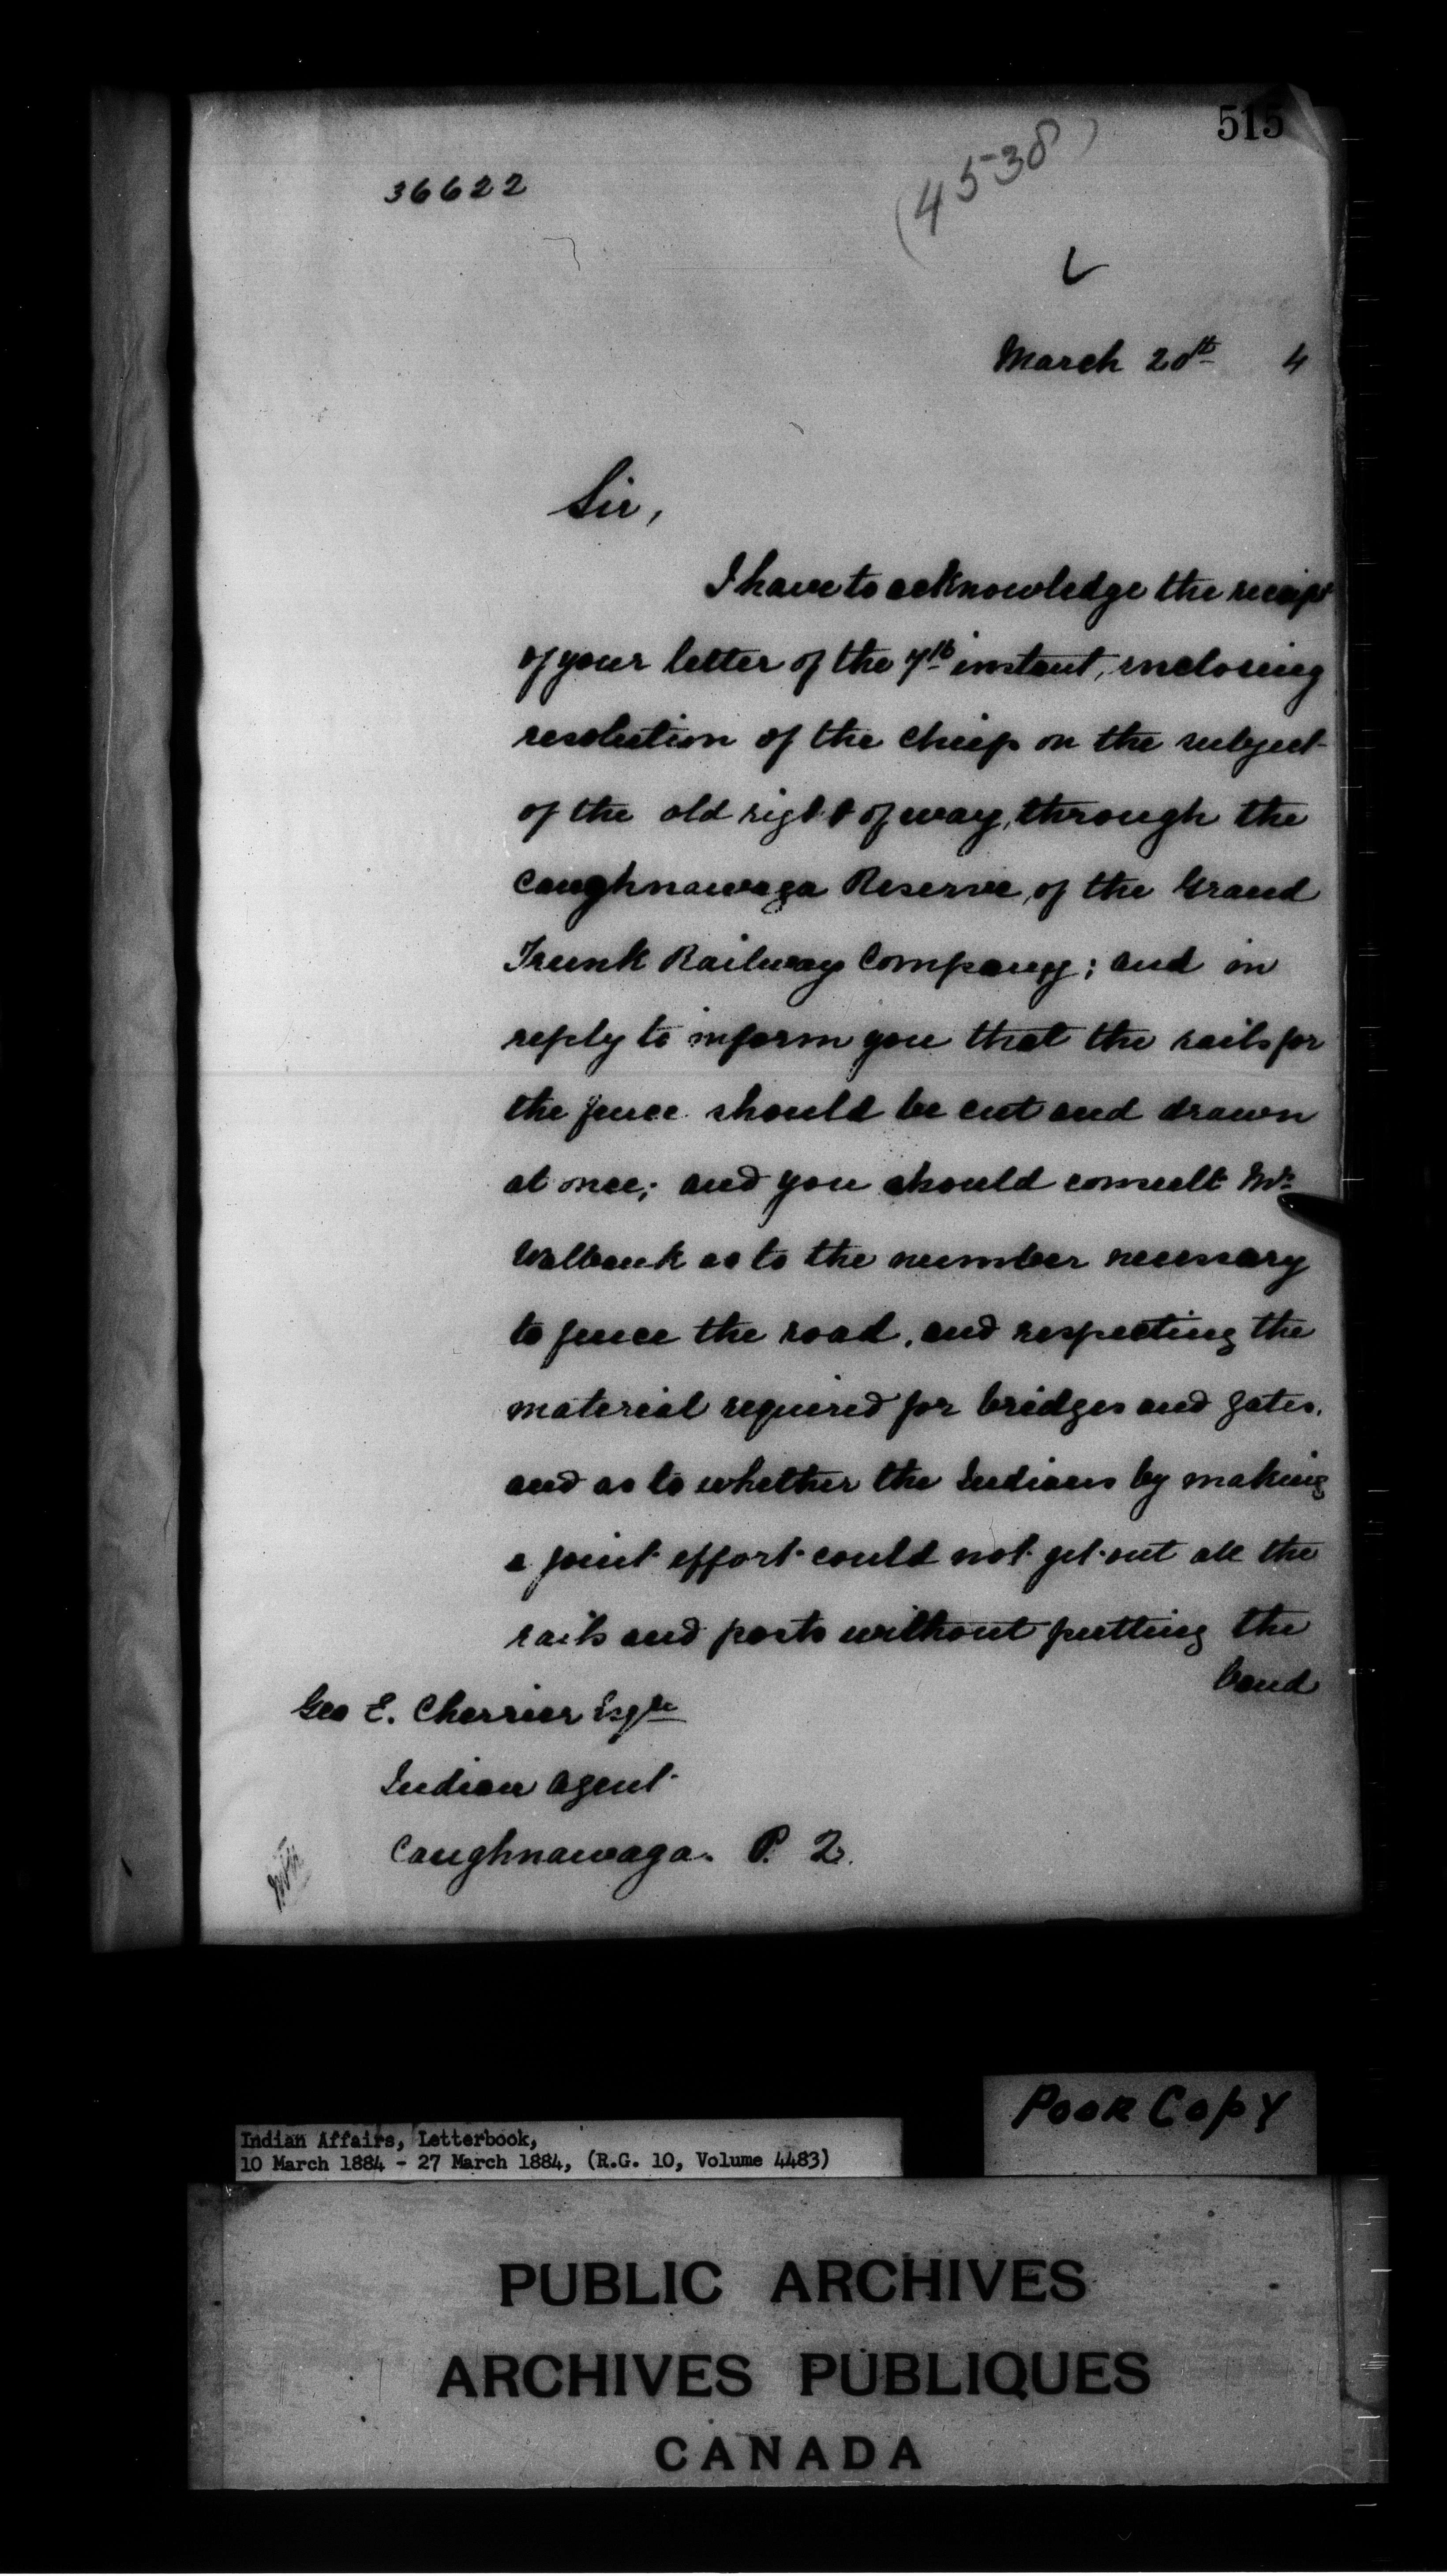 515
36622
(4538)
March 20th 4
Sir,
I have to acknowledge the receipt
of your letter of the 7th instant, enclosing
resolution of the Chiefs on the subject
of the old right of way, through the
Caughnawaga Reserve, of the Grand
Trunk Railway Company; and in
reply to inform you that the rails for
the fence should be cut and drawn
at once; and you should consult Mr.
Walbank as to the number necessary
to fence the road, and respecting the
material required for bridges and gates,
and as to whether the Indians by making
a joint effort could not get out all the
rails and posts without putting the
band
Geo E. Cherrier Esqre
Indian Agent
Caughnawaga. P. Q.
Poor Copy
Indian Affairs, Letterbook,
10 March 1884 - 27 March 1884, (R.G. 10, Volume 4483)
PUBLIC ARCHIVES
ARCHIVES PUBLIQUES
CANADA